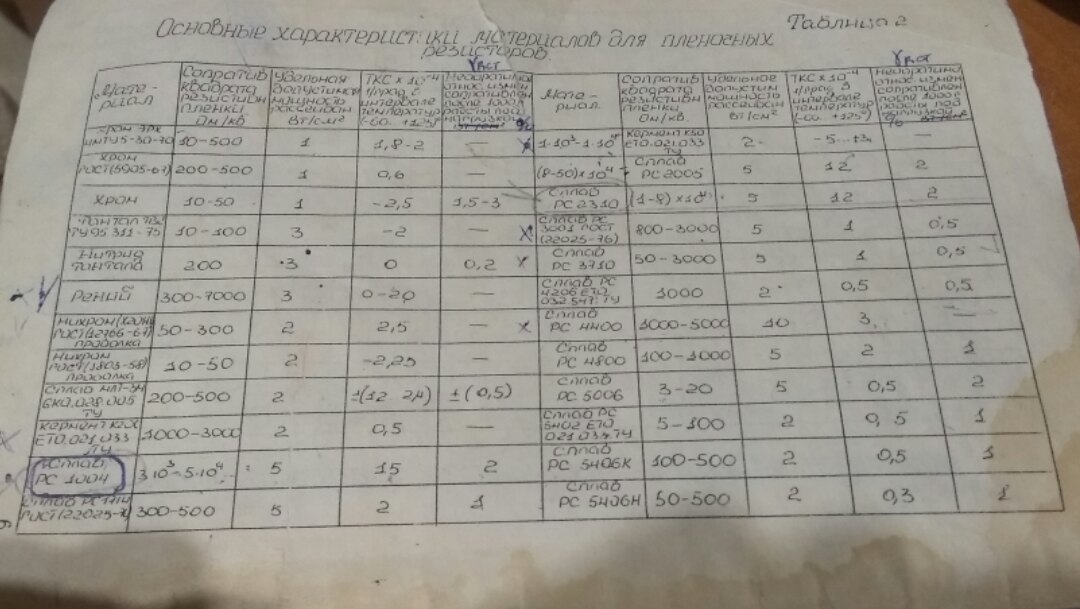 Таблица 2
Основные характеристики материалов для пленочных
резисторов.
Мате-
риал
Сопротив
квадрата
резистивн
пленки
Ом/кв.
Удельная
допустимая
мощность
рассеиван
Вт/см²
ТКС×10⁻⁴
1/град в
интервале
температур
(-60.. +125°)
γRст
Необратимое
относ. измен
сопротивлен
после 1000ч
работы под
нагрузкой
%
Мате-
риал
Сопротив
квадрата
резистивн
пленки
Ом/кв.
Удельное
допустим
мощность
рассеиван
Вт/см²
ТКС×10⁻⁴
1/град в
интервале
температур
(-60.. +125°)
γRст
Необратимо
относ. измен
сопротивлен
после 1000ч
работы под
нагрузкой
%
Хром ЭРХ
ЧМТУ5-30-70 10-500 1 1,8-2 —
1·10³-1·10⁴ Кермет К50
ЕТО.021.033
ТУ 2 -5..+3 —
Хром
ГОСТ(5905-67) 200-500 1 0,6
(8-50)×10⁴ Сплав
РС 2005 5 12 2
Хром 10-50 1 -2,5 1,5-3
Сплав
РС 2310 (1-8)×10⁴ 5 12 2
Тантал
ТУ95.311-75 10-100 3 -2 —
Сплав РС
3001 ГОСТ
(22025-76) 800-3000 5 1 0,5
Нитрид
тантала 200 3 0 0,2
Сплав
РС 3710 50-3000 5 1 0,5
Рений 300-7000 3 0-20 —
Сплав РС
4206 ЕТО
032.547.ТУ 1000 2 0,5 0,5
Нихром (Х20Н80)
ГОСТ(12766-67)
проволка 50-300 2 2,5 —
Сплав
РС 4400 1000-5000 10 3 —
Нихром
ГОСТ(1803-58)
проволка 10-50 2 -2,25 —
Сплав
РС 4800 100-1000 5 2 1
Сплав МЛТ-3М
6К0.028.005
ТУ 200-500 2 ±(1,2 2,4) ±(0,5)
Сплав
РС 5006 3-20 5 0,5 2
Кермет
ЕТО.021.033
ТУ 1000-3000 2 0,5 —
Сплав РС
5402 ЕТО
021.034.ТУ 5-100 2 0,5 1
Сплав
РС 1004 3·10³-5·10⁴ 5 15 2
Сплав
РС 5406К 100-500 2 0,5 1
Сплав РС 1714
ГОСТ(22025-76) 300-500 5 2 1
Сплав
РС 5406Н 50-500 2 0,3 1